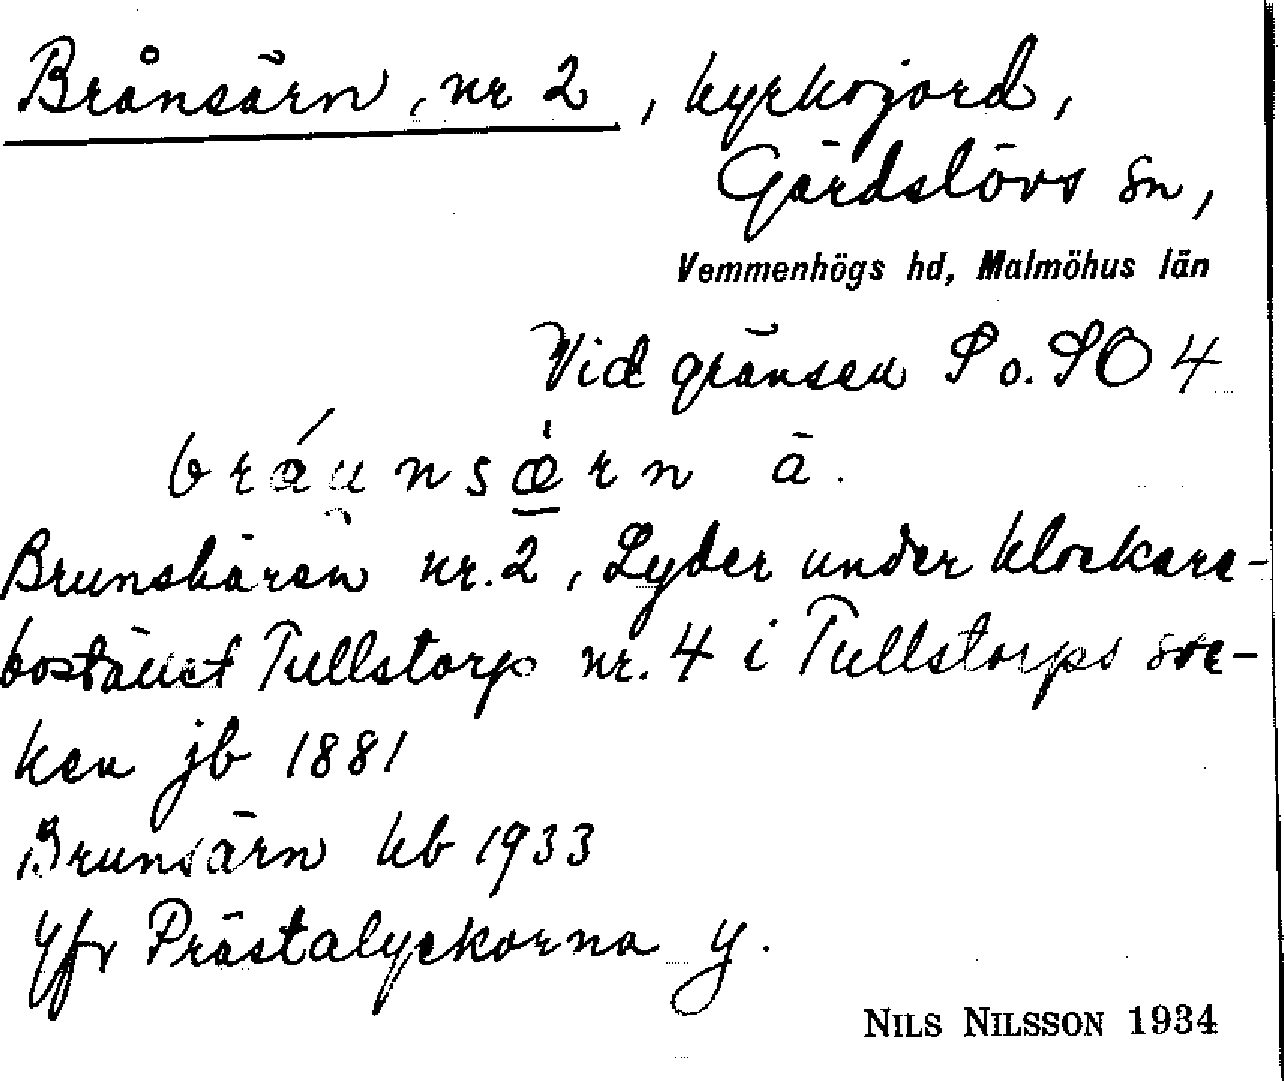 Brånsärn, nr 2, kyrkojord,
Gärdslövs sn,
Vemmenhögs hd, Malmöhus län
Vid gränsen S o. SO 4
bráunsærn ä.
Brunskären nr. 2, Lyder under klockare-
bostället Tullstorp nr. 4 i Tullstorps soc-
ken jb 1881
Brunsärn kb 1933
Yfr Prästalyckorna y.
NILS NILSSON 1934